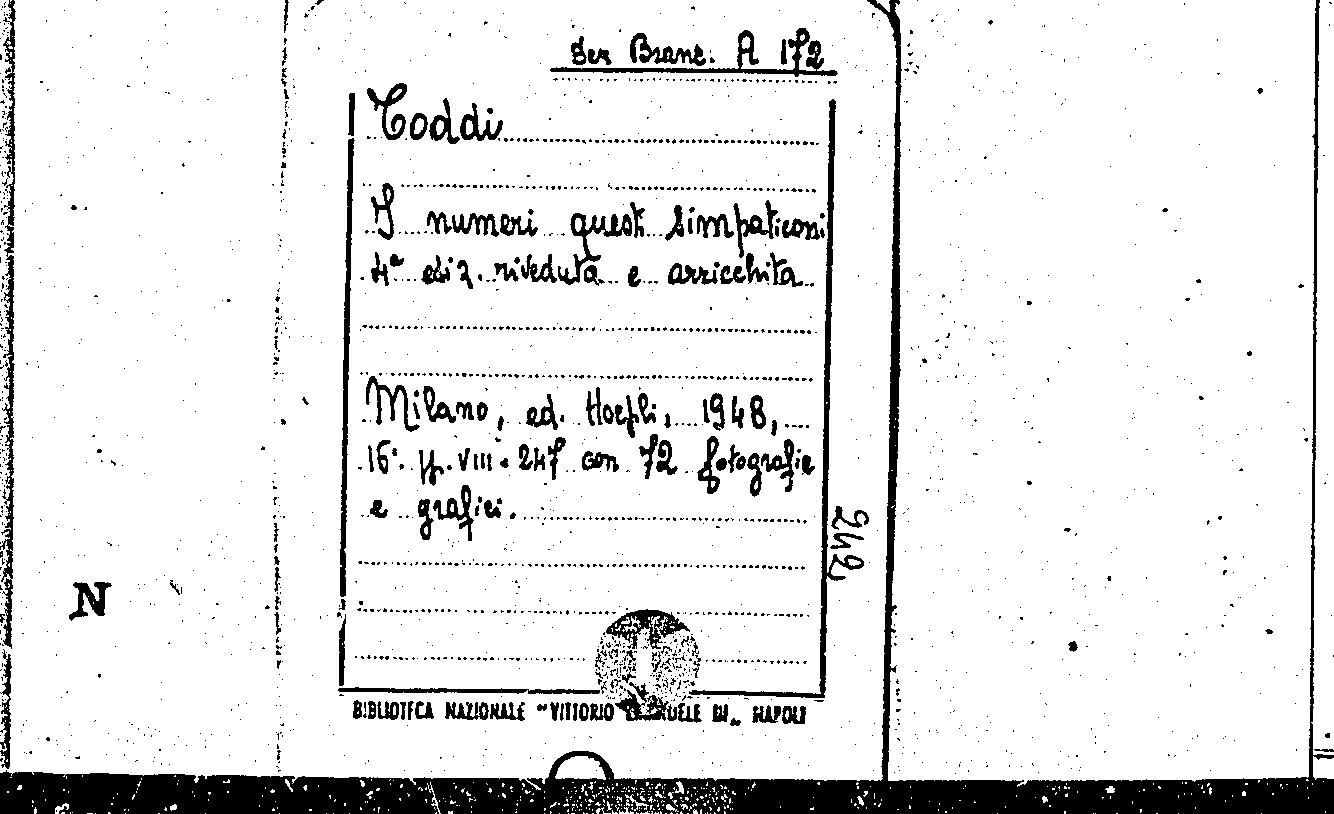 Ser Branc. A 172
Toddi
I numeri questi simpaticoni
4ª ediz. riveduta e arricchita
Milano, ed. Hoepli, 1948,
16°. pp. VIII - 247 con 72 fotografie
e grafici.
242
N
BIBLIOTECA NAZIONALE "VITTORIO EMANUELE III" NAPOLI